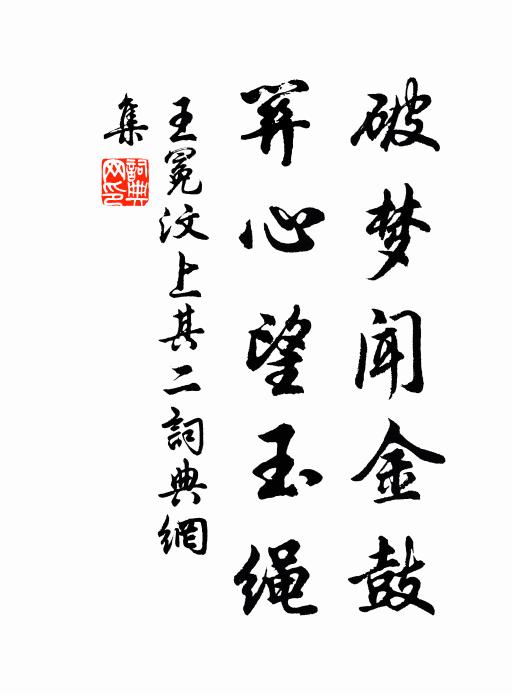 破梦闻金鼓
心望玉绳
王冕汶上其二詞典網
集
詞典网印